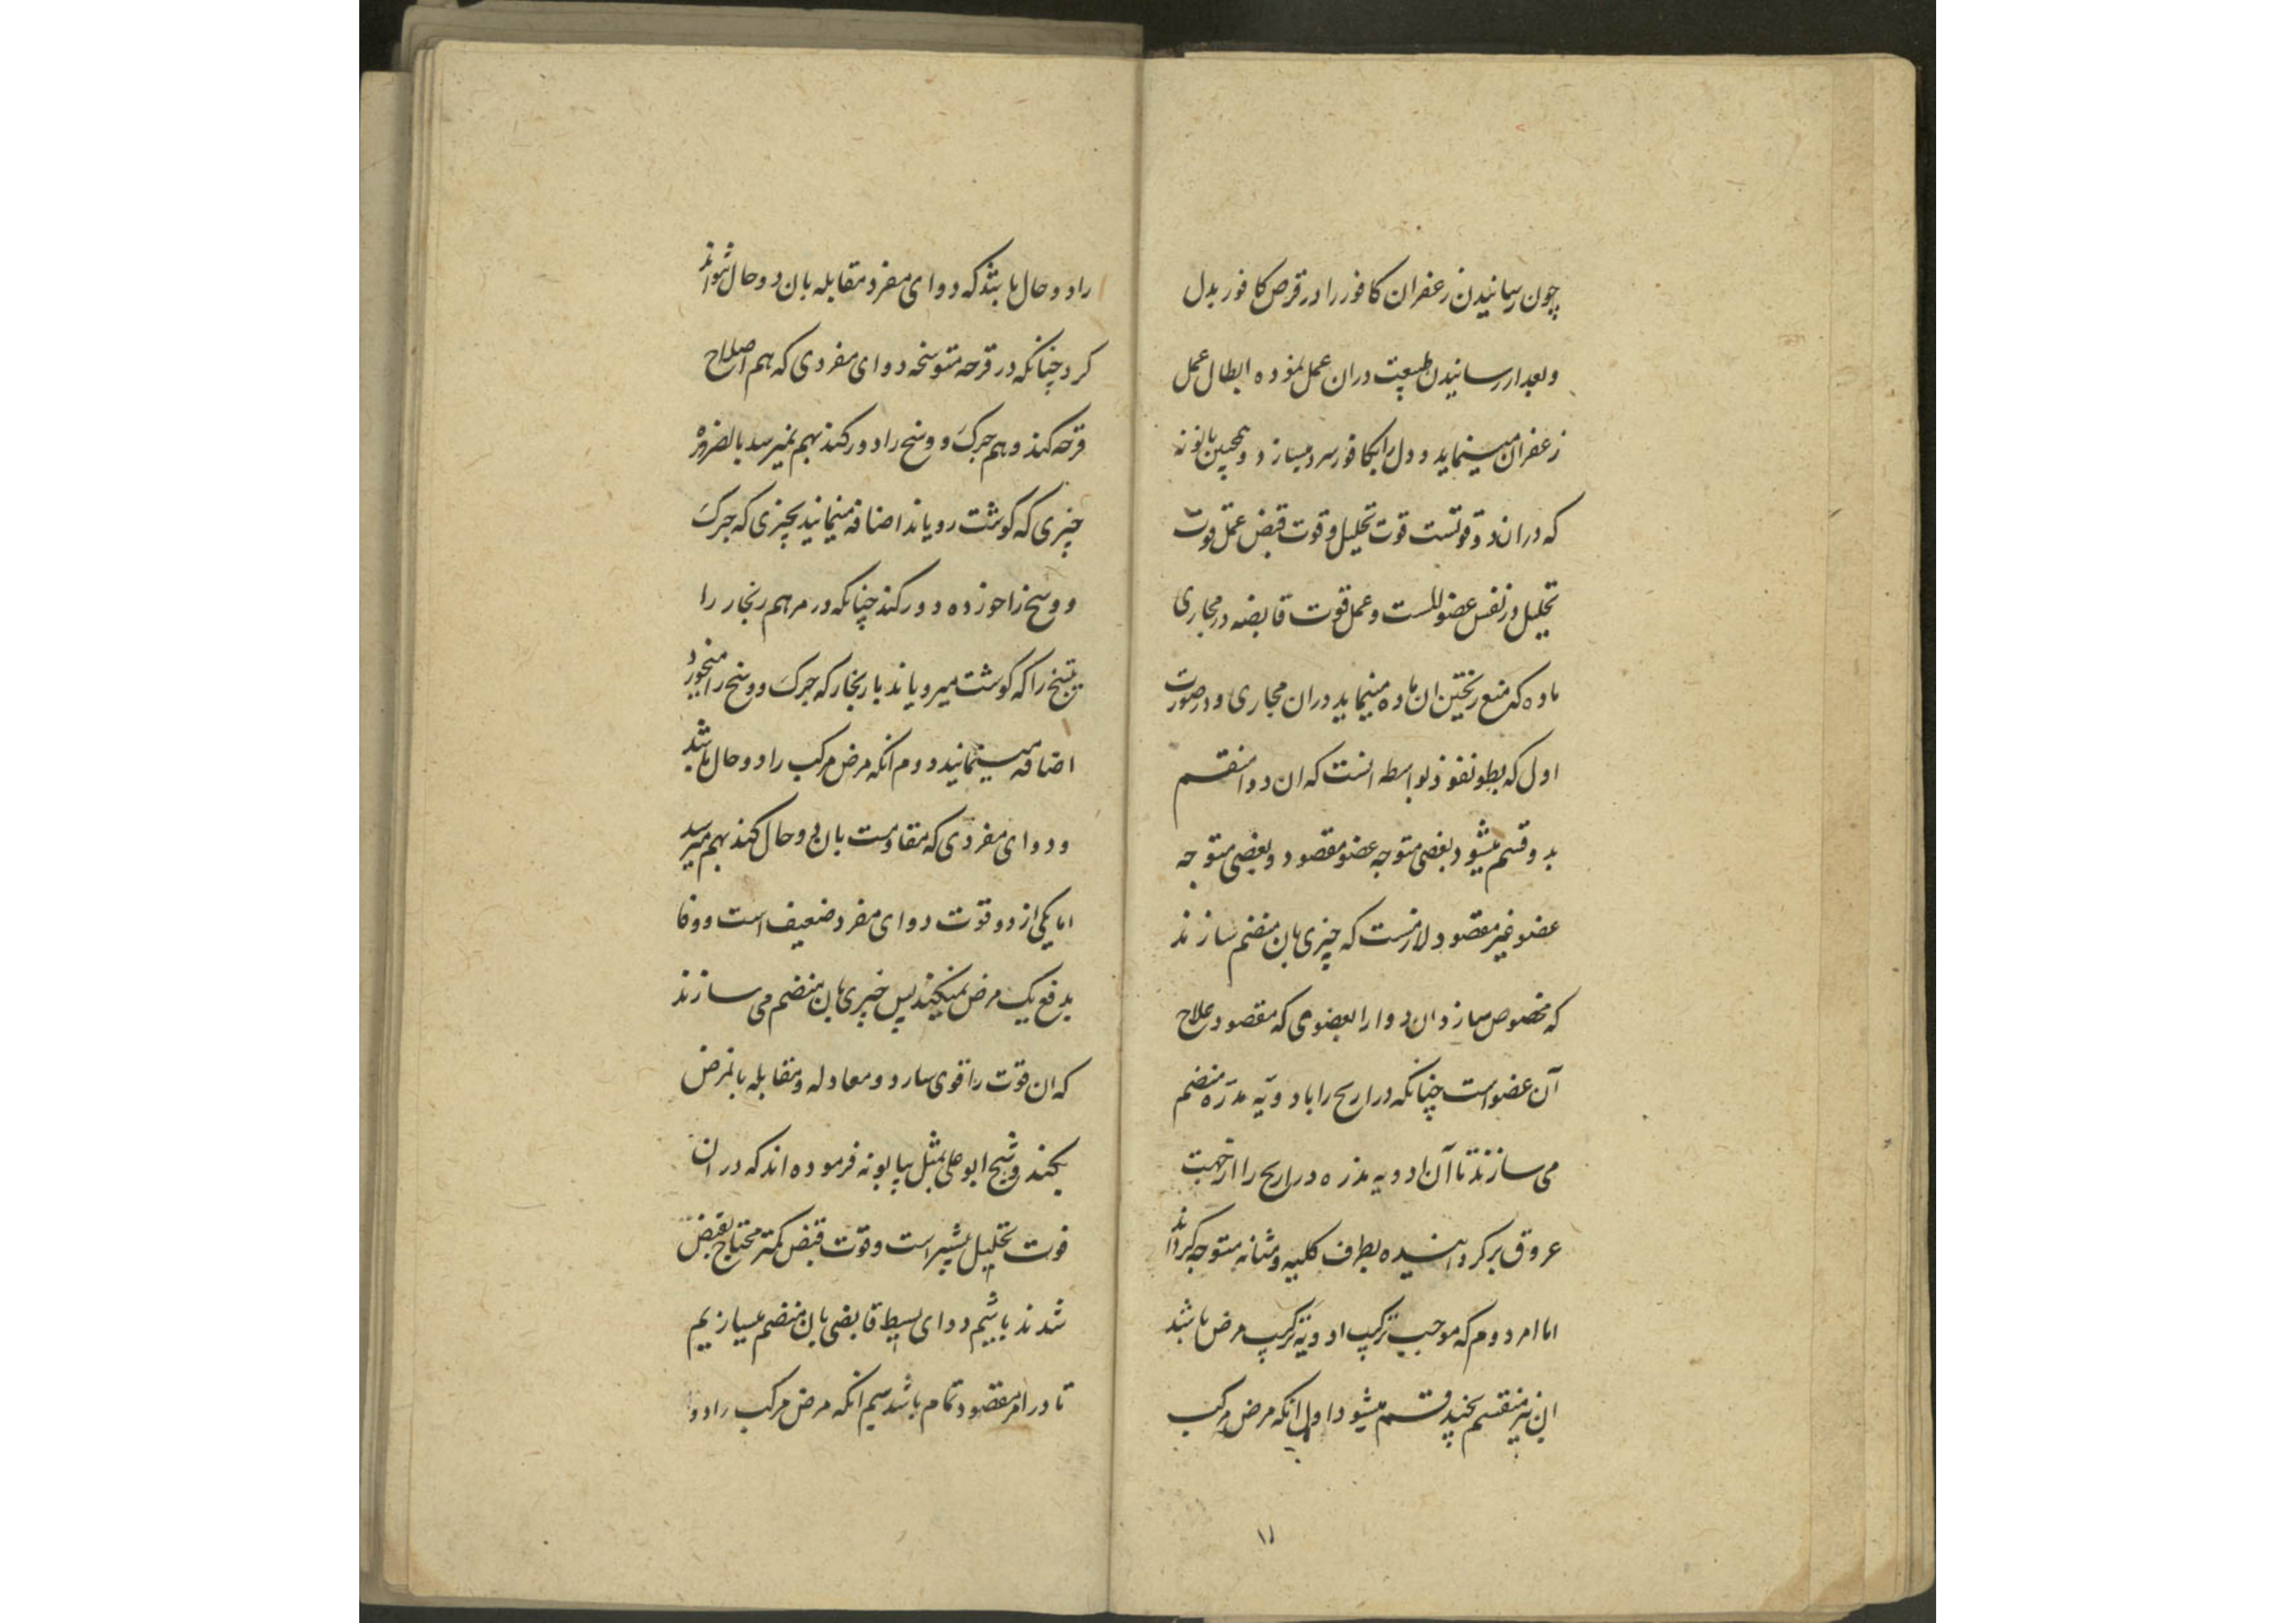 چون رسانیدن زعفران کافور را در قرص کافور بدل
و بعد از رسانیدن طبیعت دران عمل نموده ابطال عمل
زعفران مینماید و دل را بکافور سرد میسازد و همچنین بابونه
که دران دو قوتست قوت تحلیل و قوت قبض عمل قوت
تحلیل در نفس عضو الست و عمل قوت قابضه در مجاری
ماده که منع ریختن ان ماده مینماید دران مجاری و در صورت
اول که بطو نفوذ بواسطه انست که ان دوا منقسم
بدو قسم میشود بعضی متوجه عضو مقصود و بعضی متوجه
عضو غیر مقصود لازمست که چیزی بان منضم سازند
که مخصوص سازد ان دوا را بعضوی که مقصود علاج
آن عضو است چنانکه دراریح را با دویّه مدرّه منضم
می سازند تا آن ادویه مدره دراریح را از جهت
عروق برگردانیده بطرف کلیه و مثانه متوجه گرداند
اما امر دوم که موجب ترکیب ادویّه ترکیب مرض باشد
این نیز منقسم بچند قسم میشود اول انکه مرض مرکب
۱۱
را دو حال باشد که دوای مفرد مقابله بان دو حال نتواند
کرد چنانکه در قرحه متوسخه دوای مفردی که هم اصلاح
قرحه کند و هم چرک و وسخ را دور کند بهم نمیرسد بالضروره
چیزی که گوشت رویاند اضافه مینمایند بچیزی که چرک
و وسخ را خورده دور کند چنانکه در مرهم زنجار را
که گوشت میرویاند بازنجار که چرک و وسخ را میخورد
اضافه مینمایند دوم انکه مرض مرکب را دو حال باشد
و دوای مفردی که مقاومت بان دو حال کند بهم میرسد
اما یکی از دو قوت دوای مفرد ضعیف است و وفا
بدفع یک مرض نمیکند پس چیزی بان منضم می سازند
که ان قوّت را قوی سازد و معادله و مقابله بامرض
بکند و شیخ ابو علی بمثل ببابونه فرموده اند که در ان
قوت تحلیل بیشتر است و قوّت قبض کمتر محتاج بقبض
شدید باشیم دوای بسیط قابضی بان منضم میسازیم
تا در امر مقصود تمام باشد سیم انکه مرض مرکب را دو